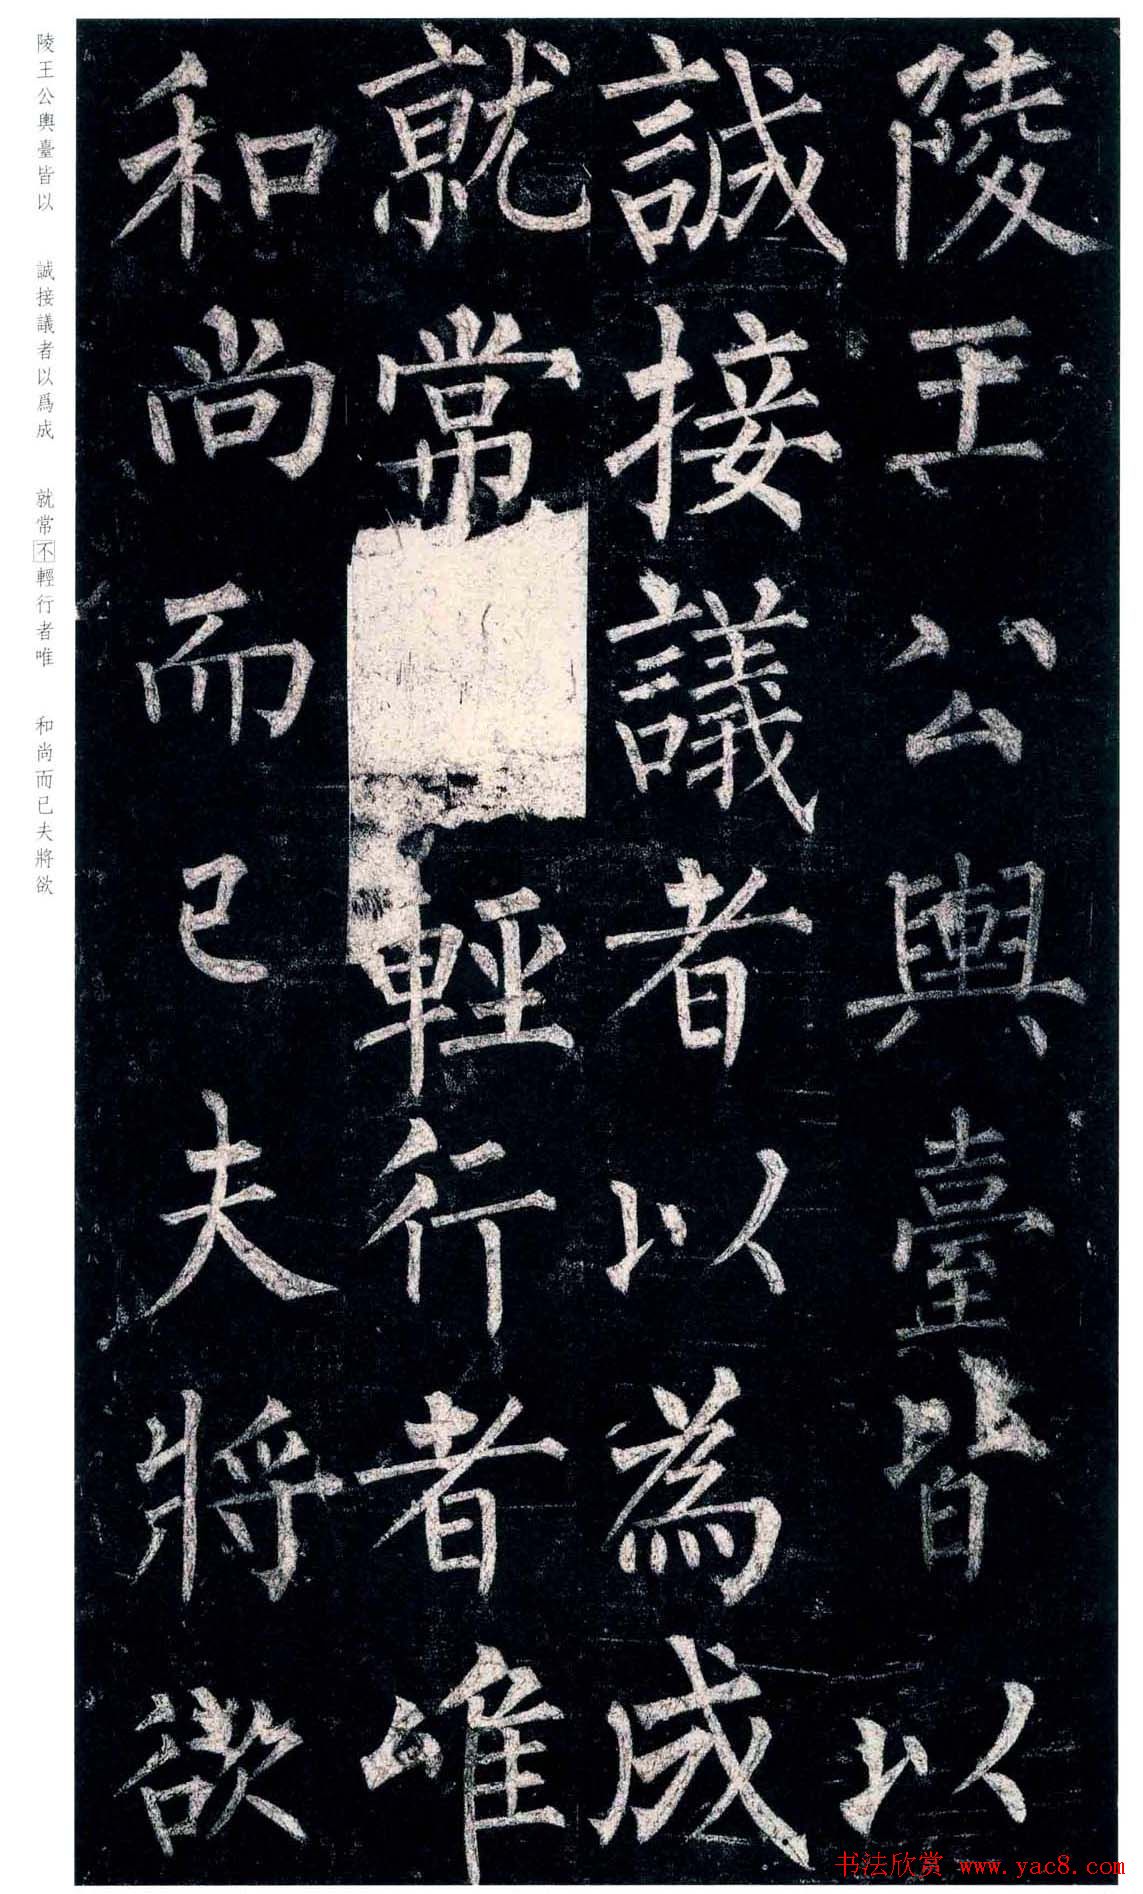 陵王公輿臺皆以
誠接議者以為成
就常輕行者唯
和尚而已夫將欲
陵王公輿臺皆以 誠接議者以爲成 就常不輕行者唯 和尚而已夫將欲
书法欣赏 www.yac8.com